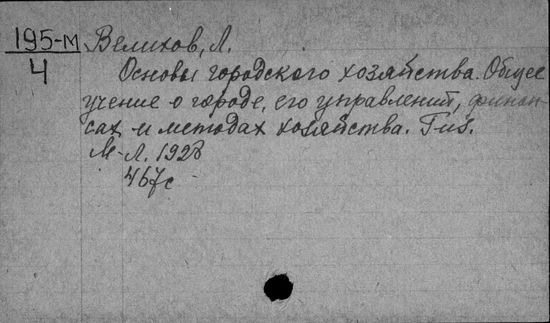 195-М Велихов, Л.
4 Основы городского хозяйства. Общее
учение о городе, его управлений, финан-
сах и методах хозяйства. Гиз.
М-Л. 1928
467с